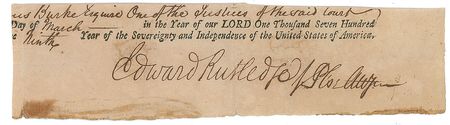 us Burke Esquire One of the Justices of the said Court
Day of March in the Year of our LORD One Thousand Seven Hundred
Ninth Year of the Sovereignty and Independence of the United States of America.
Edward Rutledge